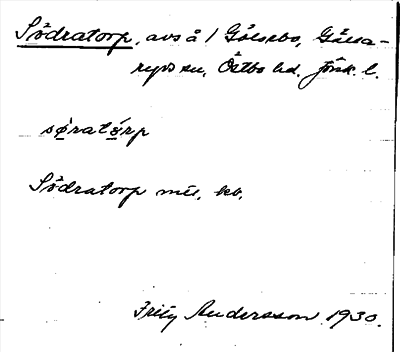 Södratorp, avs å 1 Gölsebo, Gälla-
ryds sn, Östbo hd. Jönk. l.
søratɷrp
Södratorp mtl. kb.
Fritz Andersson 1930.